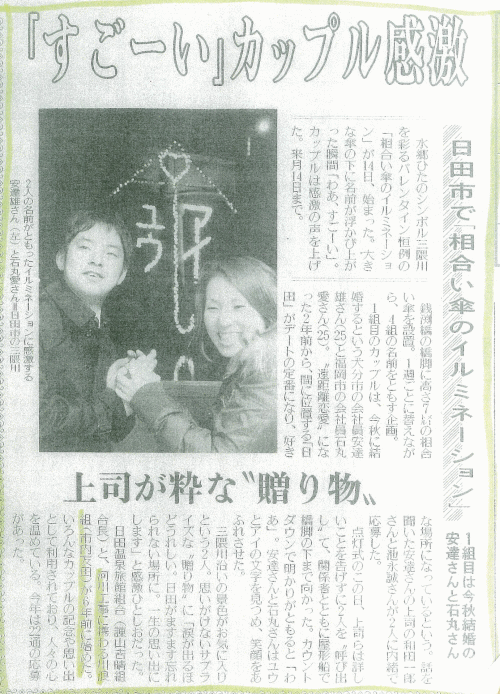 「すごーい」カップル感激
日田市で「相合い傘のイルミネーション」
1組目は今秋結婚の
安達さんと石丸さん
水郷ひたのシンボル三隈川
を彩るバレンタイン恒例の
「相合い傘のイルミネーショ
ン」が14日、始まった。大き
な傘の下に名前が浮かび上が
った瞬間「わあ、すごーい」。
カップルは感激の声を上げ
た。来月14日まで。
ユウ
アイ
2人の名前がともったイルミネーションに感激する
安達雄さん(左)と石丸愛さん=日田市の三隈川
銭渕橋の橋脚に高さ7㍍の相合
い傘を設置。1週ごとに替えなが
ら、4組の名前をともす企画。
1組目のカップルは、今秋に結
婚するという大分市の会社員安達
雄さん(25)と福岡市の会社員石丸
愛さん(25)。“遠距離恋愛”にな
った2年前から、間に位置する「日
田」がデートの定番になり、好き
上司が粋な〝贈り物〟
な場所になっているという。話を
聞いた安達さんの上司の和田一郎
さんと池永誠さんが2人に内緒で
応募した。
点灯式のこの日、上司らは詳し
いことを告げずに2人を〝呼び出
し〟て、関係者とともに屋形船で
橋脚の下まで向かった。カウント
ダウンで明かりがともると「わ
あ」。安達さんと石丸さんはユウ
とアイの文字を見つめ、笑顔をあ
ふれさせた。
三隈川沿いの景色がお気に入り
という2人。思いがけないサプラ
イズな〝贈り物〟に「涙が出るほ
どうれしい。日田がますます忘れ
られない場所に。一生の思い出に
します」と感激ひとしおだった。
日田温泉旅館組合(諌山吉晴組
合長)と、河川工事に携わる川浪
組(市内三和)が6年前に始めた。
いろんなカップルの記念や思い出
として利用されており、人々の心
を温めている。今年は22通の応募
があった。